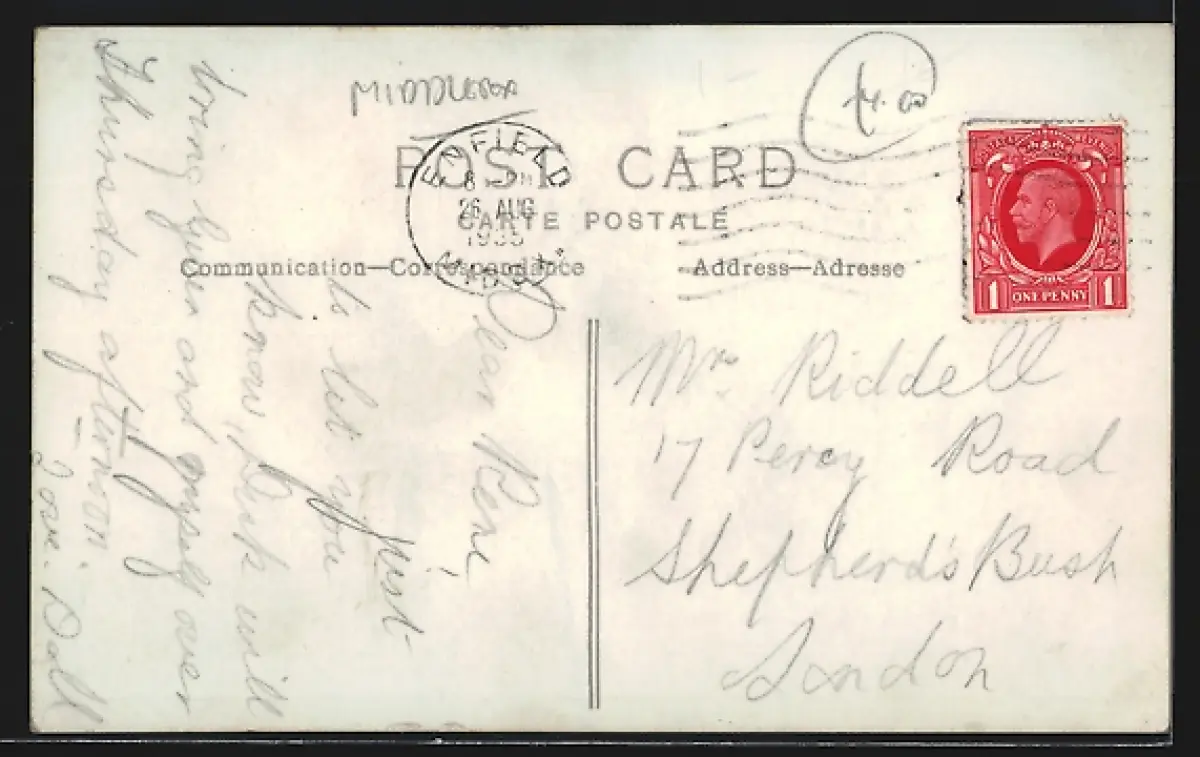 MIDDLESEX
4.00
POST CARD
CARTE POSTALE
Communication—Correspondance
Address—Adresse
ENFIELD
26 AUG
ONE PENNY
1 1
Dear Rene,
Just
to let you
know, Dick will
bring Gwen and myself over
Thursday afternoon
Love. Doll
Mrs. Riddell
17 Percy Road
Shepherd's Bush
London